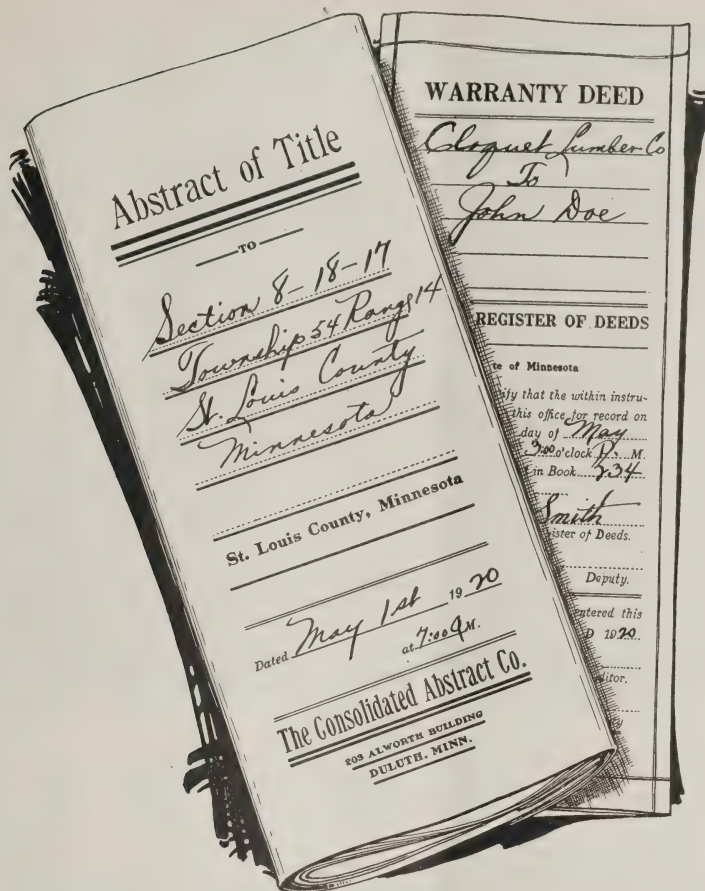 Abstract of Title
TO
Section 8-18-17
Township 54 Range 14
St. Louis County
Minnesota
St. Louis County, Minnesota
Dated May 1st 1920
at 7:00 A.M.
The Consolidated Abstract Co.
203 ALWORTH BUILDING
DULUTH, MINN.
WARRANTY DEED
Cloquet Lumber Co
To
John Doe
REGISTER OF DEEDS
te of Minnesota
ify that the within instru-
this office for record on
day of May
3:00 o'clock P. M.
in Book 234
Smith
ister of Deeds.
Deputy.
entered this
D 1920.
ditor.